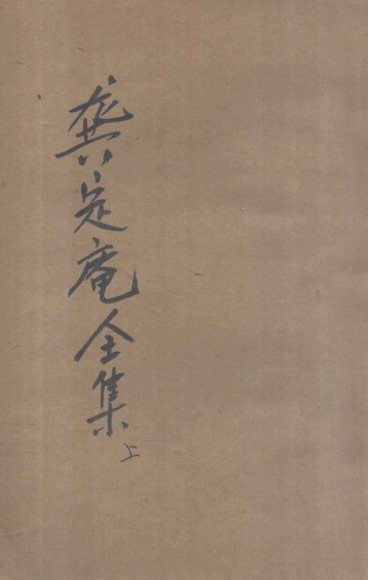 龚定庵全集上